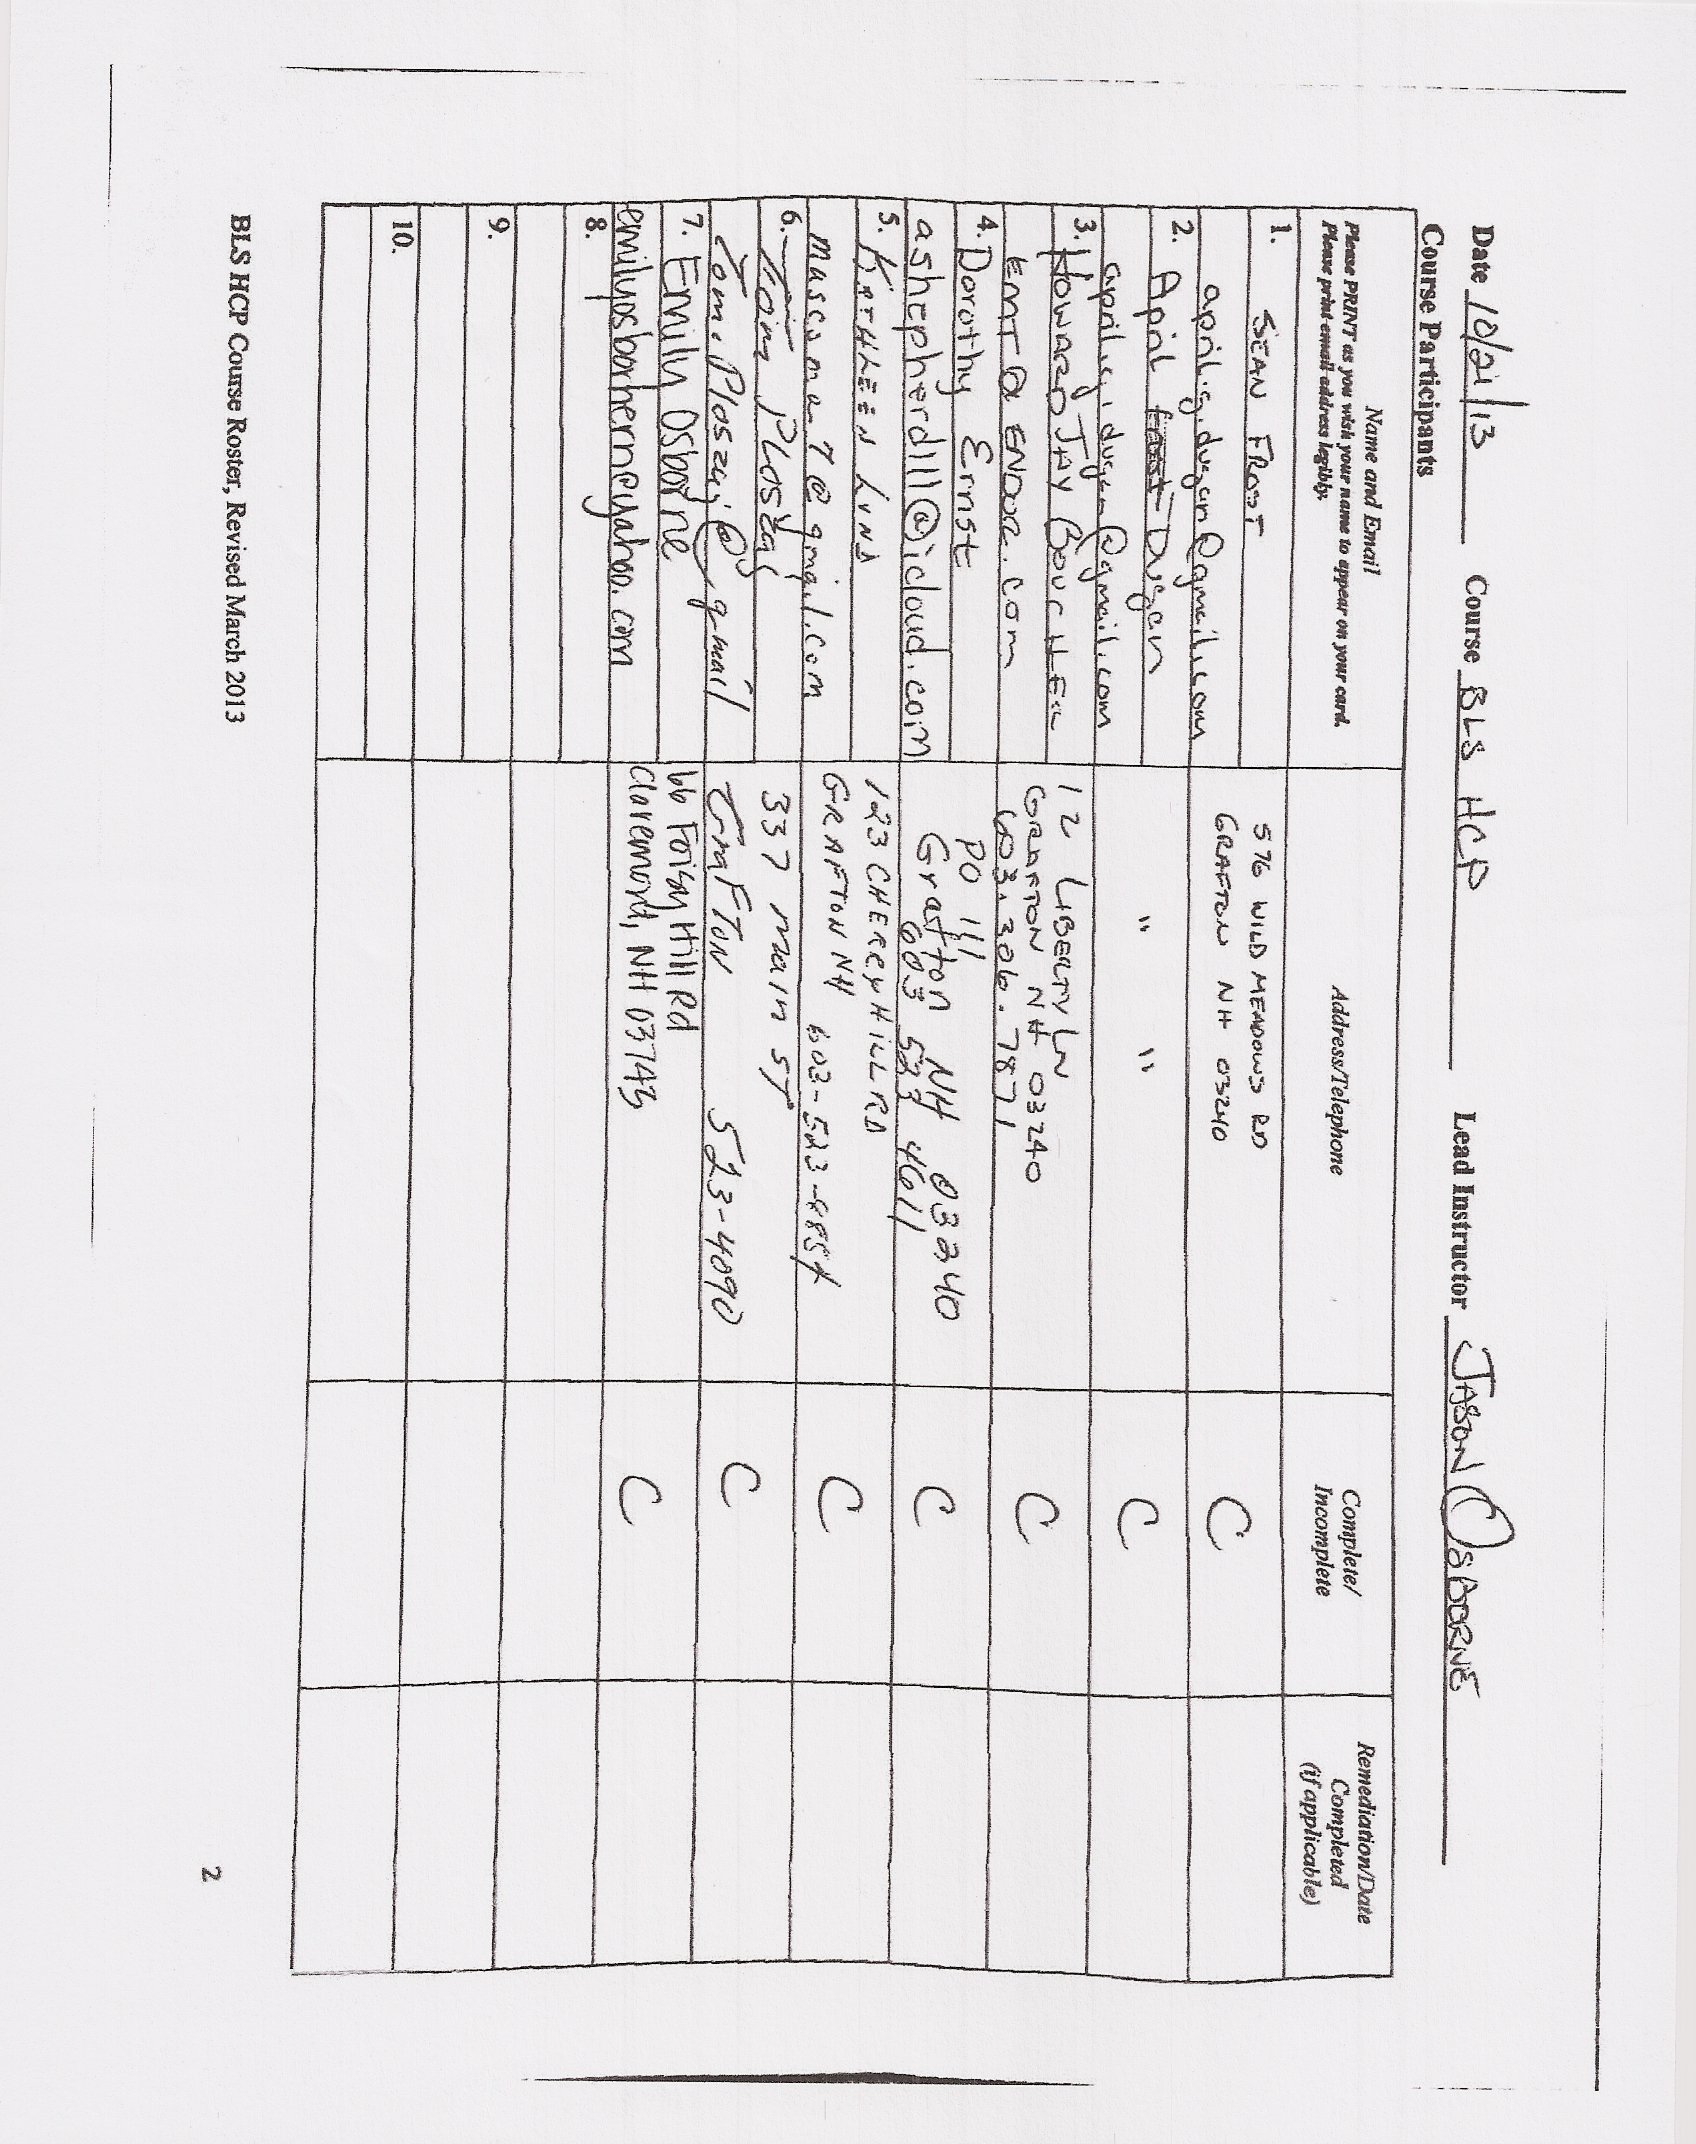 Date 10/21/13 Course BLS HCP Lead Instructor JASON OSBORNE
Course Participants
Name and Email
Please PRINT as you wish your name to appear on your card.
Please print email address legibly.
Address/Telephone
Complete/
Incomplete
Remediation/Date
Completed
(if applicable)
1. SEAN FROST
april.g.dugan@gmail.com
576 WILD MEADOWS RD
GRAFTON NH 03240
C
2. April Dugan
april.g.dugan@gmail.com
" "
C
3. HOWARD JAY BOUCHER
EMT@ENDOR.com
12 LIBERTY LN
GRAFTON NH 03240
603.306.7871
C
4. Dorothy Ernst
ashepherdill@icloud.com
PO 111
Grafton NH 03240
603 523 4611
C
5. KATHLEEN LUND
mascoma7@gmail.com
123 CHERRY HILL RD
GRAFTON NH 603-523-
C
6. Tom PLoszaj
Tom.Ploszaj@gmail
337 main st
GrafTon 523-4090
C
7. Emily Osborne
emilyosbornerneyahoo.com
66 Foisy Hill Rd
Claremont, NH 03743
C
8.
9.
10.
BLS HCP Course Roster, Revised March 2013
2